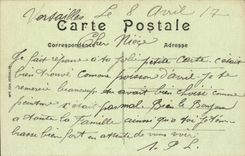 Versailles Le 8 Avril 17
Carte Postale
Correspondance Adresse
Cher Nièce
Je fait réponse a ta jolie petite Carte c'était
bien trouvé comme poisson d'avril Je te
remercie beaucoup avait bien choisi comme
peinture c'était pas mal Bien le Bonjour
a toute la famille ainsi qu'a toi Je t'em
brasse bien fort en attente de vous voir